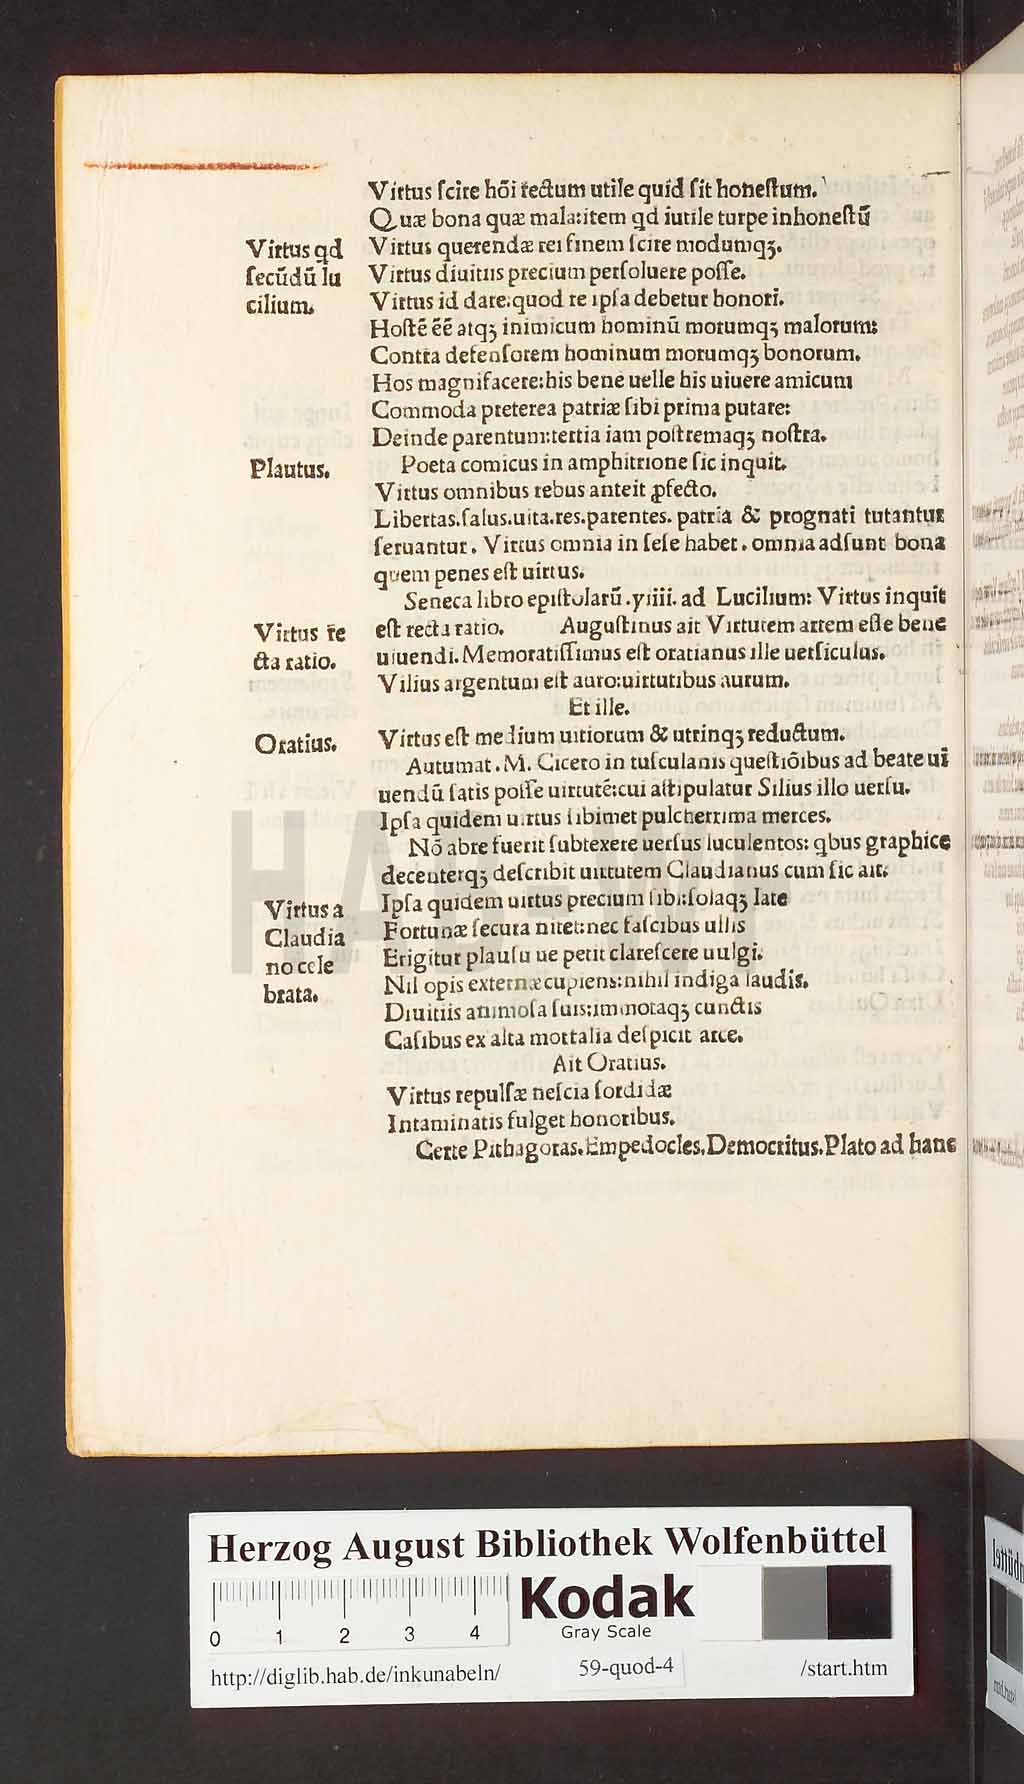 Virtus ſcire hōi rectum utile quid ſit honeſtum.
Quæ bona quæ mala:item qd iutile turpe inhoneſtū
Virtus querendæ rei finem ſcire modumqꝫ.
Virtus diuitiis precium perſoluere poſſe.
Virtus id dare:quod re ipſa debetur honori.
Virtus qd
ſecūdū lu
cilium.
Hoſtē ēē atqꝫ inimicum hominū morumqꝫ malorum:
Contra defenſorem hominum morumqꝫ bonorum.
Hos magnifacere:his bene uelle his uiuere amicum
Commoda preterea patriæ ſibi prima putare:
Deinde parentum:tertia iam poſtremaqꝫ noſtra.
Plautus.
Poeta comicus in amphitrione ſic inquit.
Virtus omnibus rebus anteit ꝓfecto.
Libertas.ſalus.uita.res.parentes. patria & prognati tutantur
ſeruantur. Virtus omnia in ſeſe habet. omnia adſunt bona
quem penes eſt uirtus.
Seneca libro epiſtolarū .yiiii. ad Lucilium: Virtus inquit
Virtus re
cta ratio.
eſt recta ratio. Auguſtinus ait Virtutem artem eſſe bene
uiuendi. Memoratiſſimus eſt oratianus ille uerſiculus.
Vilius argentum eſt auro:uirtutibus aurum.
Et ille.
Oratius.
Virtus eſt medium uitiorum & utrinqꝫ reductum.
Autumat. M. Cicero in tuſculanis queſtiōibus ad beate ui
uendū ſatis poſſe uirtutē:cui aſtipulatur Silius illo uerſu.
Ipſa quidem uirtus ſibimet pulcherrima merces.
Nō abre fuerit ſubtexere uerſus luculentos: qbus graphice
decenterqꝫ deſcribit uirtutem Claudianus cum ſic ait.
Virtus a
Claudia
no cele
brata.
Ipſa quidem uirtus precium ſibi:ſolaqꝫ late
Fortunæ ſecura nitet:nec faſcibus ullis
Erigitur plauſu ue petit clareſcere uulgi.
Nil opis externæ cupiens:nihil indiga laudis.
Diuitiis animoſa ſuis:immotaqꝫ cunctis
Caſibus ex alta mortalia deſpicit arce.
Ait Oratius.
Virtus repulſæ neſcia ſordidæ
Intaminatis fulget honoribus.
Certe Pithagoras.Empedocles.Democritus.Plato ad hanc
HAB-WF
Herzog August Bibliothek Wolfenbüttel
0 1 2 3 4
Kodak
Gray Scale
http://diglib.hab.de/inkunabeln/ 59-quod-4 /start.htm